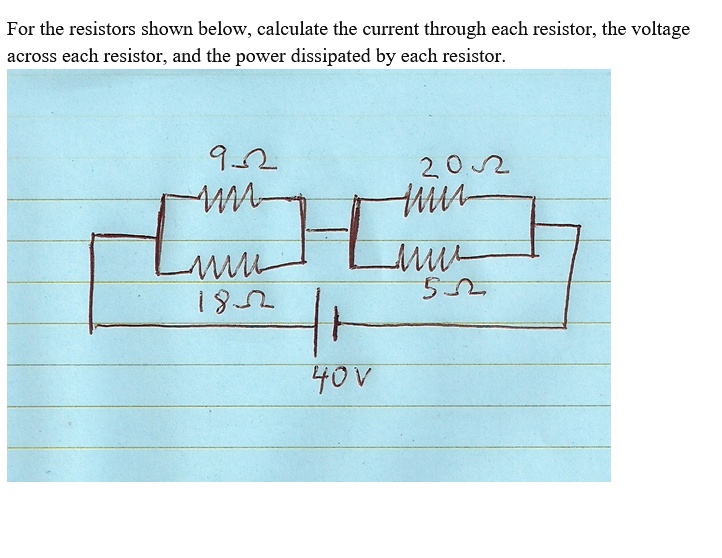 For the resistors shown below, calculate the current through each resistor, the voltage
across each resistor, and the power dissipated by each resistor.
9Ω
20Ω
18Ω
5Ω
40V